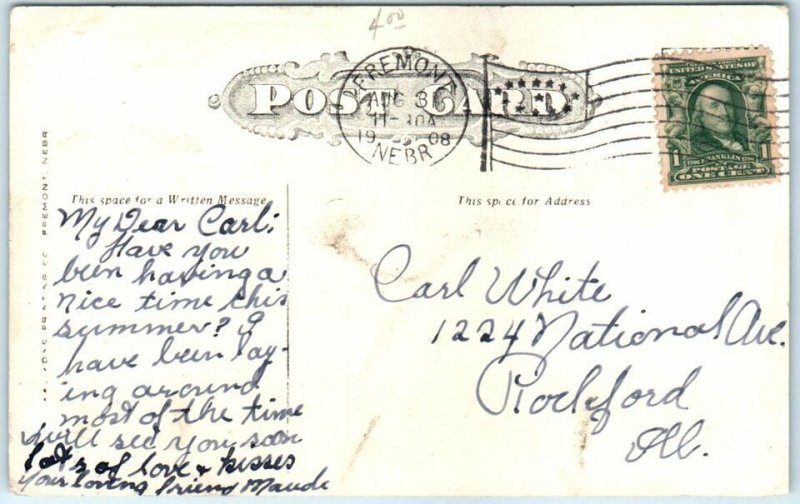 4.00
POST CARD
FREMONT
AUG 31
1908
NEBR
UNITED STATES OF
AMERICA
1 FRANKLIN 1
POSTAGE
ONE CENT
FREMONT, NEBR
This space for a Written Message
This space for Address
My Dear Carl:
Have you
been having a
nice time this
summer? I
have been lay-
ing around
most of the time
will see you soon
lots of love & kisses
your loving friend Maude
Carl White
1224 National Ave.
Rockford
Ill.